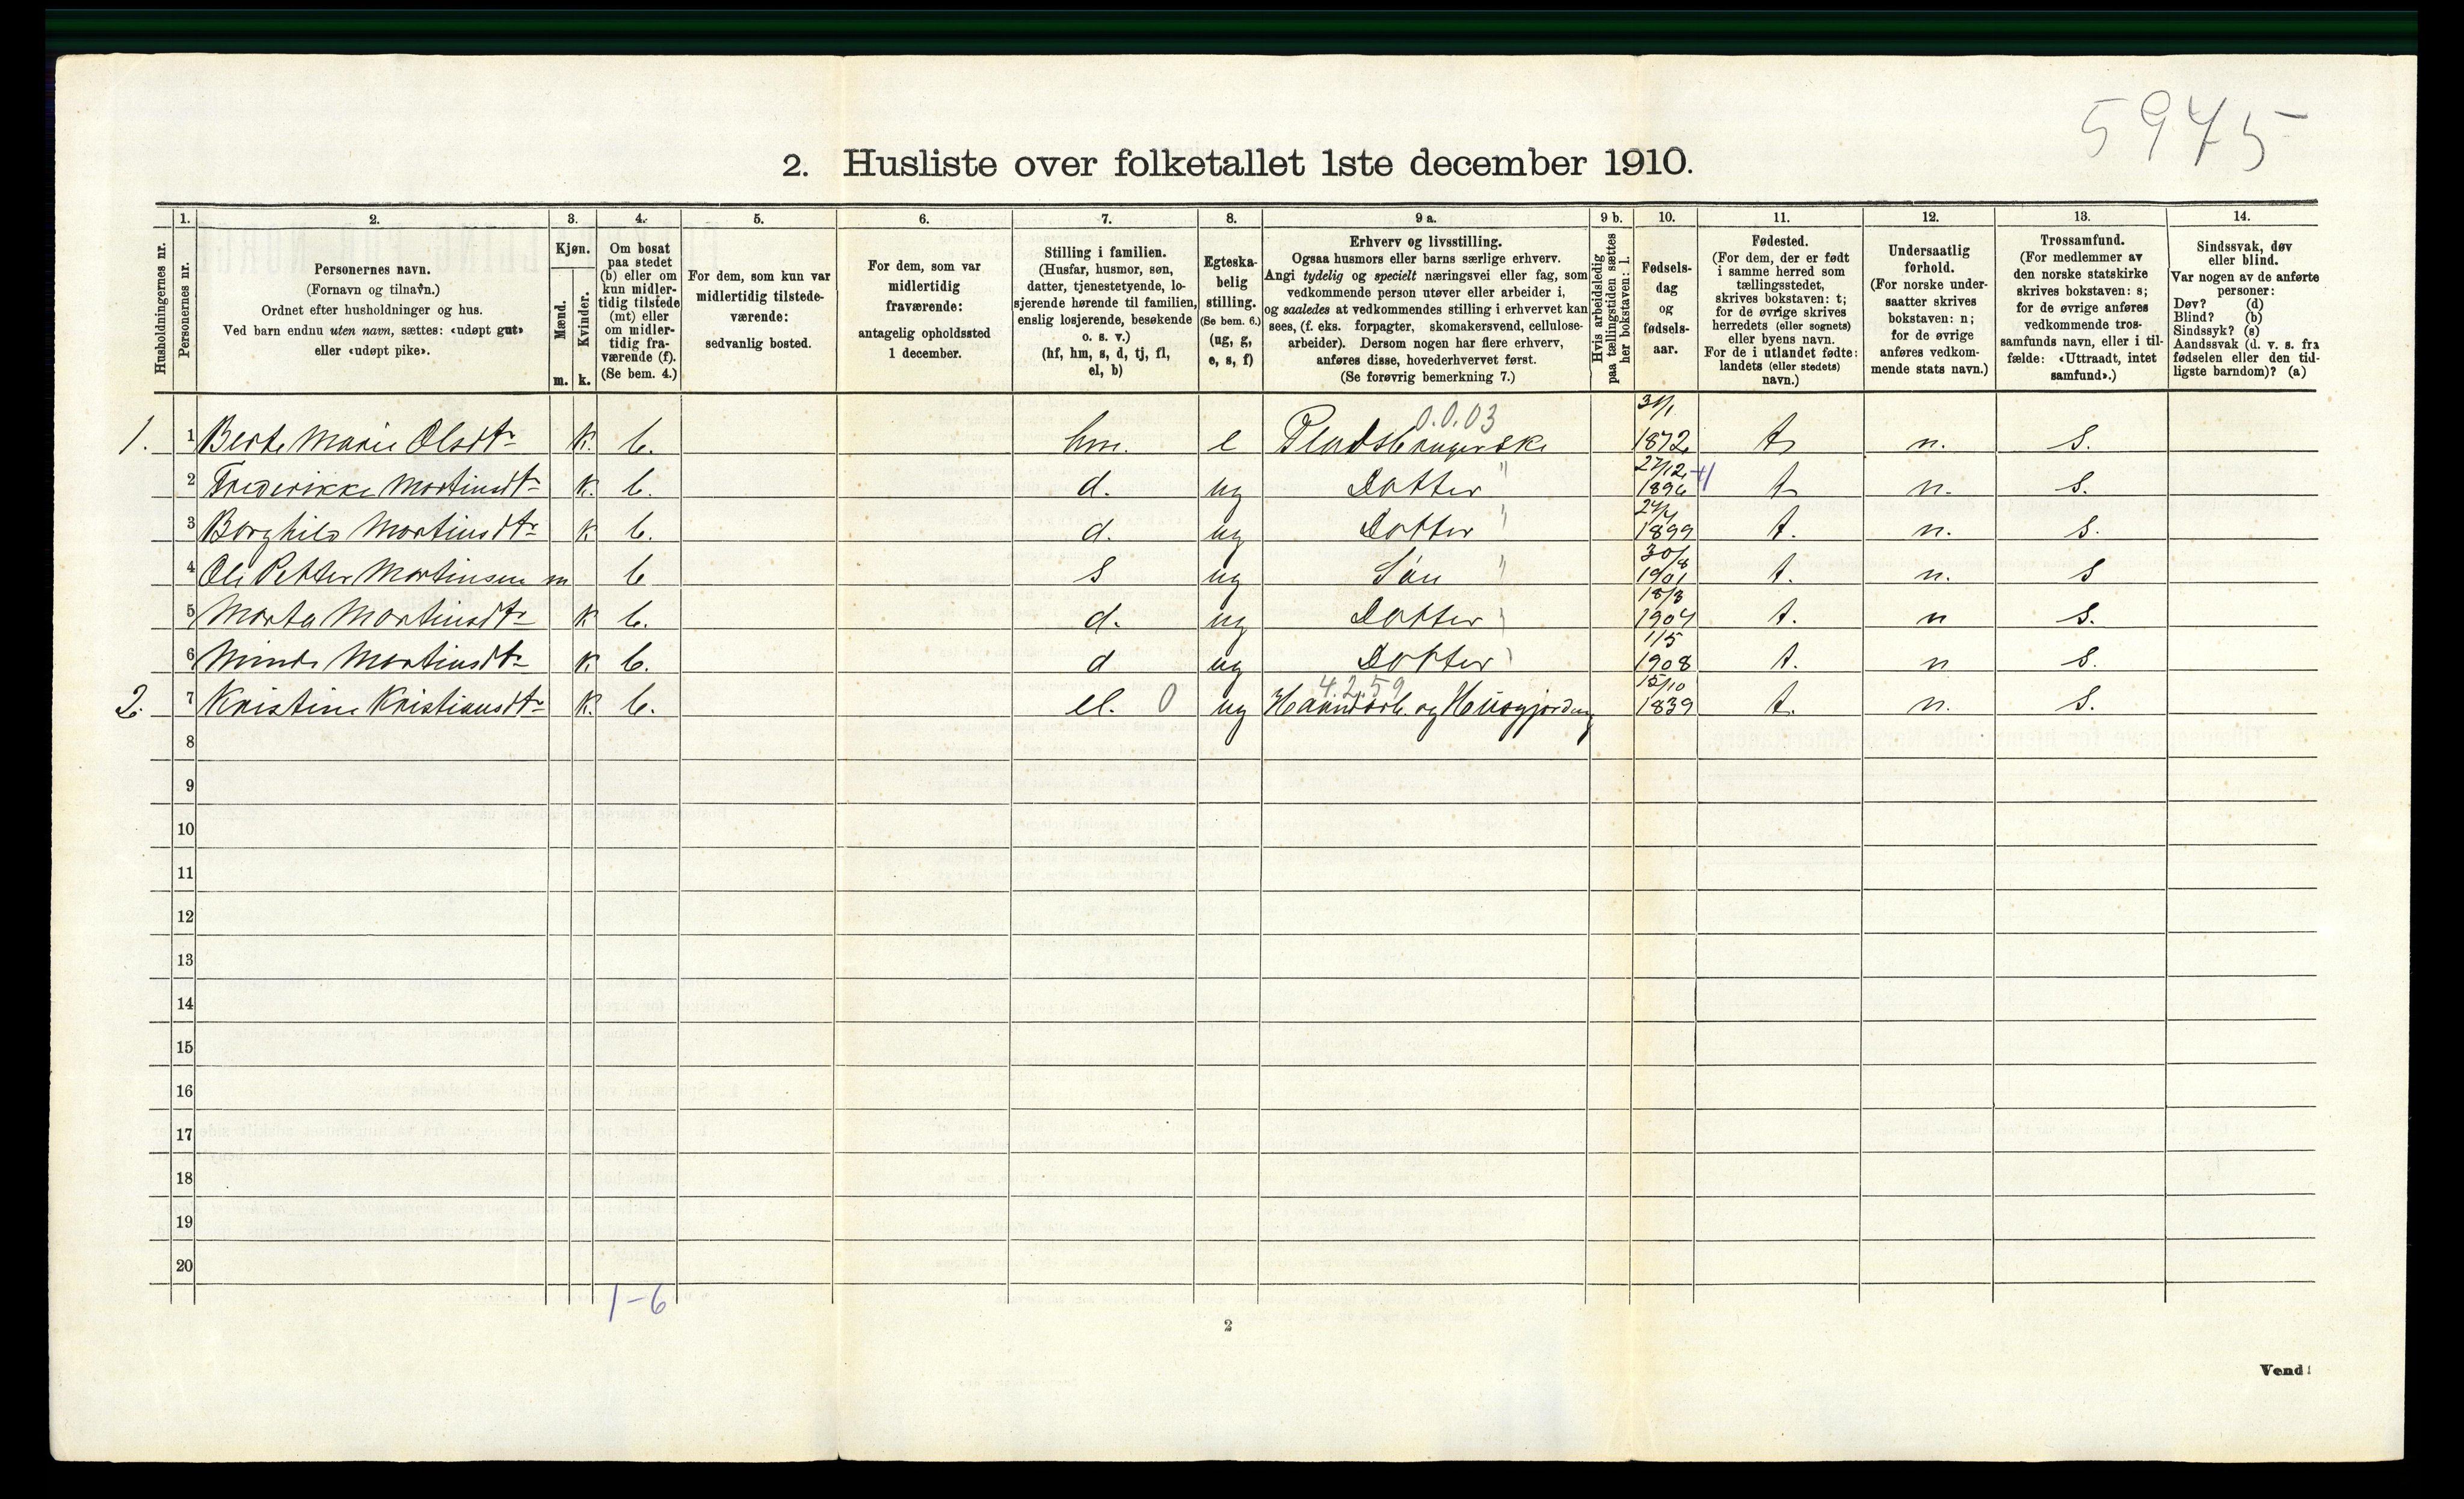 5945
2. Husliste over folketallet 1ste december 1910.
Husholdningernes nr.
1. Personernes nr.
2. Personernes navn.
(Fornavn og tilnavn.)
Ordnet efter husholdninger og hus.
Ved barn endnu uten navn, sættes: «udøpt gut»
eller «udøpt pike».
3. Kjøn.
Mænd. m.
Kvinder. k.
4. Om bosat
paa stedet
(b) eller om
kun midler-
tidig tilstede
(mt) eller
om midler-
tidig fra-
værende (f).
(Se bem. 4.)
5. For dem, som kun var
midlertidig tilstede-
værende:
sedvanlig bosted.
6. For dem, som var
midlertidig
fraværende:
antagelig opholdssted
1 december.
7. Stilling i familien.
(Husfar, husmor, søn,
datter, tjenestetyende, lo-
sjerende hørende til familien,
enslig losjerende, besøkende
o. s. v.)
(hf, hm, s, d, tj, fl,
el, b)
8. Egteska-
belig
stilling.
(Se bem. 6.)
(ug, g,
e, s, f)
9 a. Erhverv og livsstilling.
Ogsaa husmors eller barns særlige erhverv.
Angi tydelig og specielt næringsvei eller fag, som
vedkommende person utøver eller arbeider i,
og saaledes at vedkommendes stilling i erhvervet kan
sees, (f. eks. forpagter, skomakersvend, cellulose-
arbeider). Dersom nogen har flere erhverv,
anføres disse, hovederhvervet først.
(Se forøvrig bemerkning 7.)
9 b. Hvis arbeidsledig
paa tællingstiden sættes
her bokstaven: l.
10. Fødsels-
dag
og
fødsels-
aar.
11. Fødested.
(For dem, der er født
i samme herred som
tællingsstedet,
skrives bokstaven: t;
for de øvrige skrives
herredets (eller sognets)
eller byens navn.
For de i utlandet fødte:
landets (eller stedets)
navn.)
12. Undersaatlig
forhold.
(For norske under-
saatter skrives
bokstaven: n;
for de øvrige
anføres vedkom-
mende stats navn.)
13. Trossamfund.
(For medlemmer av
den norske statskirke
skrives bokstaven: s;
for de øvrige anføres
vedkommende tros-
samfunds navn, eller i til-
fælde: «Uttraadt, intet
samfund».)
14. Sindssvak, døv
eller blind.
Var nogen av de anførte
personer:
Døv? (d)
Blind? (b)
Sindssyk? (s)
Aandssvak (d. v. s. fra
fødselen eller den tid-
ligste barndom)? (a)
0.0.03
1. 1 Berte Marie Olsdtr K. b. hm. e Pladsbrugerske 31/1 1872 t n. s.
2 Frederikke Martinsdtr K. b. d. ug Datter " 27/12 1896 t n. s.
3 Borghild Martinsdtr K b. d. ug Datter " 24/4 1899 t. n. s.
4 Ole Petter Martinsen m b s ug Søn " 30/8 1901 t. n. s
5 Marta Martinsdtr K b. d. ug Datter " 18/3 1904 t. n s.
6 Minda Martinsdtr K b. d ug Datter " 1/5 1908 t. n s.
4.2.59
2. 7 Kristine Kristiansdtr K. b. el. 0 ug Haandarb. og Husgjerding 15/10 1839 t. n. s.
8
9
10
11
12
13
14
15
16
17
18
19
20
1-6
2
Vend!